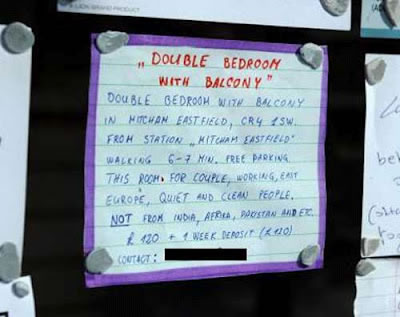 A LION BRAND PRODUCT
„DOUBLE BEDROOM
WITH BALCONY"
DOUBLE BEDROOM WITH BALCONY
IN MITCHAM EASTFIELD, CR4 1SW.
FROM STATION „MITCHAM EASTFIELD"
WALKING 6-7 MIN. FREE PARKING.
THIS ROOM FOR COUPLE, WORKING, EAST
EUROPE, QUIET AND CLEAN PEOPLE,
NOT FROM INDIA, AFRIKA, PAKISTAN AND ETC.
£ 120 + 1 WEEK DEPOSIT (£120)
CONTACT: